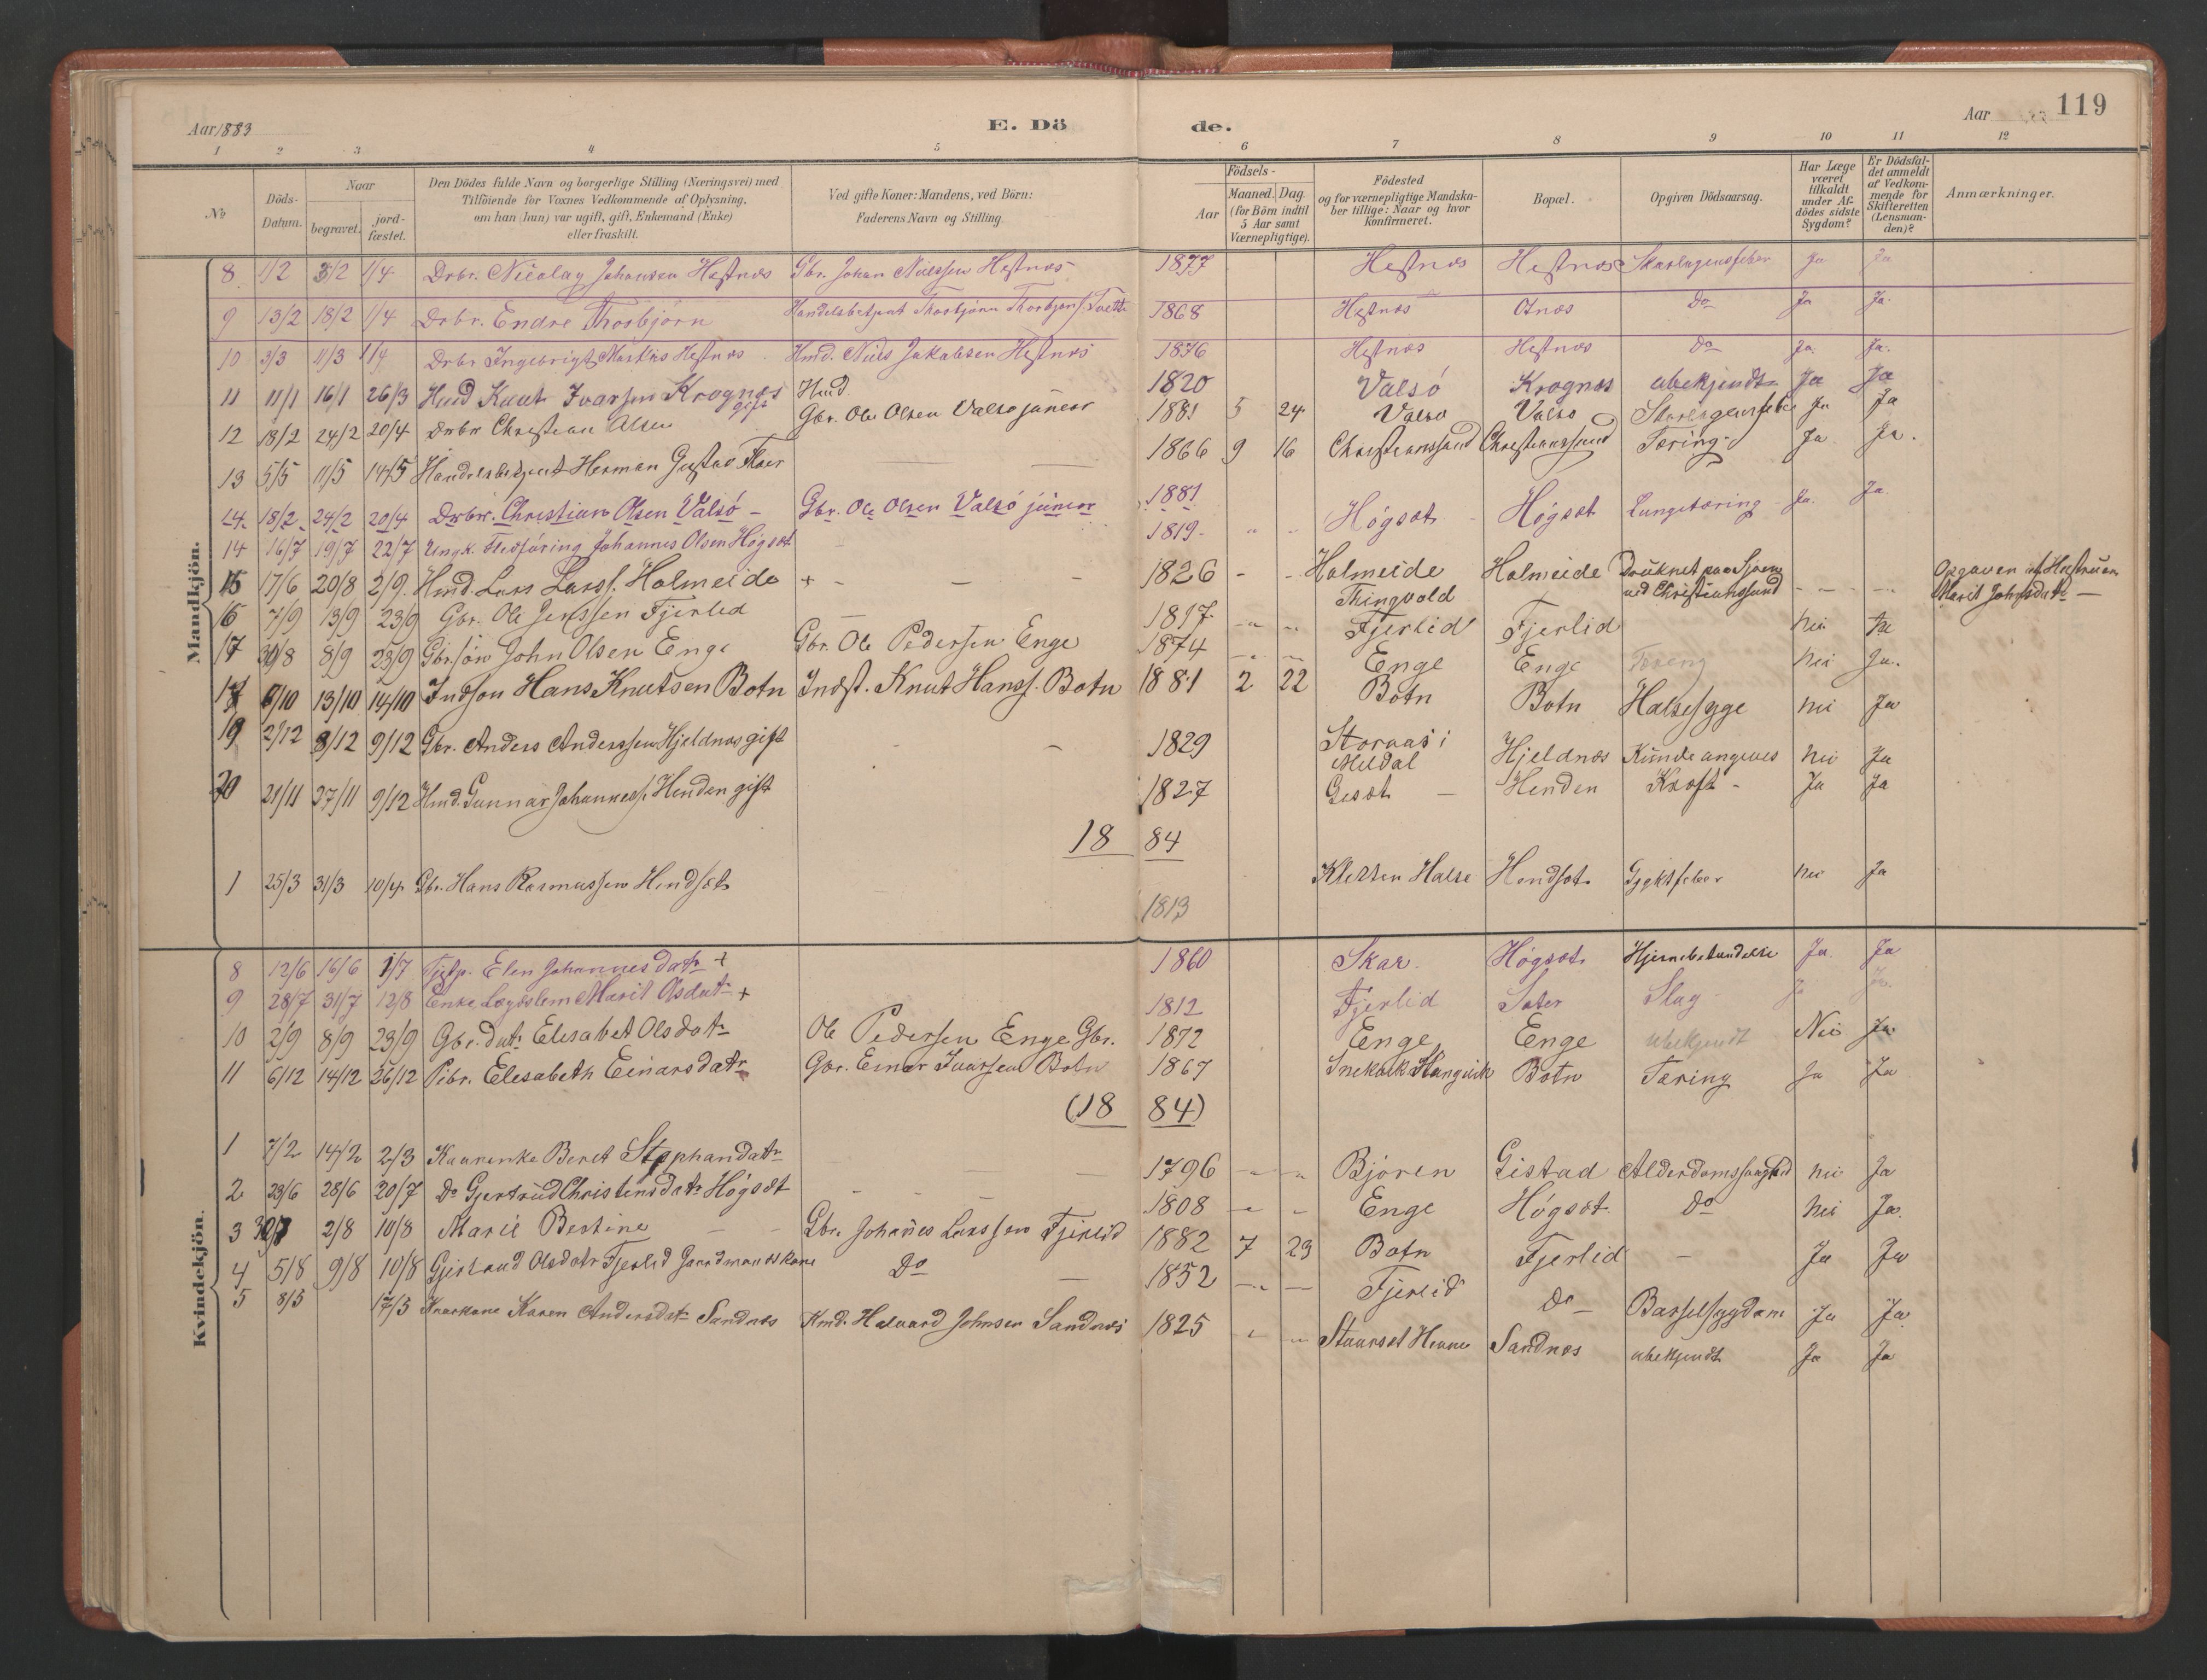 Aar 1883
E. Dö
de.
Aar
119
1 2 3 4 5 6 7 8 9 10 11 12
No
Döds-Datum.
Naar
begravet.
jord-fæstet.
Den Dödes fulde Navn og borgerlige Stilling (Næringsvei) med
Tilföiende for Voxnes Vedkommende af Oplysning,
om han (hun) var ugift, gift, Enkemand (Enke)
eller fraskilt.
Ved gifte Koner: Mandens, ved Börn:
Faderens Navn og Stilling.
Födsels-
Aar
Maaned. Dag.
(for Börn indtil
5 Aar samt
Værnepligtige).
Födested
og for værnepligtige Mandska-
ber tillige: Naar og hvor
konfirmeret.
Bopæl.
Opgiven Dödsaarsag.
Har Læge
været
tilkaldt
under Af-
dödes sidste
Sygdom?
Er Dödsfal-
det anmeldt
af Vedkom-
mende for
Skifteretten
(Lensman-
den)?
Anmærkninger.
Mandkjön.
8 1/2 3/2 1/4 Drbr. Nicolay Johansen Hestnæs Gbr. Johan Nielssen Hestnæs 1877 Hestnæs Hestnæs Skarlagensfeber Ja Ja
9 13/2 18/2 1/4 Drbr. Endre Thorbjörn Handelsbetjent Thorbjörn 1868 Hestnæs Otnæs Do Ja Ja.
10 3/3 11/3 1/4 Drbr Ingebrigt Markus Hestnæs Hmd. Niels Jakobsen Hestnæs 1876 Hestnæs Hestnæs Do Ja. Ja.
11 11/1 16/1 26/3 Hmd Knut Ivarsen Krognæs gift Hmd 1820 Valsö Krognæs ubekjendt Ja Ja
12 18/2 24/2 20/4 Drbr Christian Olsen Gbr. Ole Olsen Valsö junior 1881 5 24 Valsö Valsö Skarlagensfeber Ja Ja
13 5/5 11/5 14/5 Handelsbetjent Herman Gustav Floer 1866 9 16 Christianssund Christianssund Tæring Ja Ja.
14 18/2 24/2 20/4 Drbr. Christian Olsen Valsö – Gbr. Ole Olsen Valsö junior 1881
14 16/7 19/7 22/7 Ungk. Flesföring Johannes Olsen Högsæt 1819 Högsæt Högsæt Lungetæring Ja. Ja.
15 17/6 20/8 2/9. Hmd. Lars Larss. Halmeide + – – – 1826 – – Halmeide Thingvold Halmeide Druknet paa Sjöen ved Christianssund – – Opgaven af Hustruen Marit Johnsdtr –
16 7/9 13/9 23/9 Gbr. Ole Jenssen Fjerlid – 1817 Fjerlid Fjerlid Nei Ja
17 30/8 8/9 23/9 Gbr.sön John Olsen Enge Gbr. Ole Pedersen Enge 1874 Enge Enge Tæring Nei Ja.
6/10 13/10 14/10 Indson Hans Knutsen Botn Indst. Knut Hanss. Botn 1881 2 22 Botn Botn Halsesyge Nei Ja
19 2/12 8/12 9/12 Gbr. Anders Anderssen Hjeldnæs gift – 1829 Storaas i Meldal Hjeldnæs Kunde angives Nei Ja
20 21/11 27/11 9/12 Hmd. Gunnar Johanness. Henden gift 1827 Gesæt – Henden Kræft – Ja Ja
18 84
1 25/3 31/3 10/4 Gbr. Hans Rasmussen Hendsæt 1813 Kletten Halse Hendsæt Gigtfeber Nei Ja
Kvindekjön.
8 12/6 16/6 1/7 Elen Johannesdatr + 1860 Skar. Högsæt Hjernebetændelse Ja. Ja
9 28/7 31/7 12/8 Enke Lægdslem Marit Olsdatr + 1812 Fjerlid Sæter Slag Ja Ja.
10 2/9 8/9 23/9 Gbr. datr Elesabet Olsdatr Ole Pedersen Enge Gbr. 1872 Enge Enge ubekjendt Nei Ja
11 6/12 14/12 26/12 Pibr. Elesabeth Einarsdatr Gbr. Einar Ivarsen Botn 1867 Stangvik Botn Tæring Ja Ja
(18 84)
1 7/2 14/2 2/3 Kaarenke Beret Stephandatr 1796 Björen Gistad Alderdomssvaghed Nei Ja
2 23/6 28/6 20/7 Do Gjertrud Christensdatr Högsæt 1808 Enge Högsæt Do Nei Ja.
3 30/7 2/8 10/8 Marie Bertine – – Gbr. Johanes Larssen Fjerlid 1882 7 23 Botn Fjerlid – Ja Ja
4 5/8 9/8 10/8 Gjertrud Olsdatr Fjerlid Gaardmandskone Do – 1852 Fjerlid Do Barselsygdom Ja Ja.
5 8/5 17/5 Karen Andersdatr Sandnæs Kmd. Halvard Johnsen Sandnæs 1825 Staurset Hevne Sandnæs ubekjendt Ja Ja